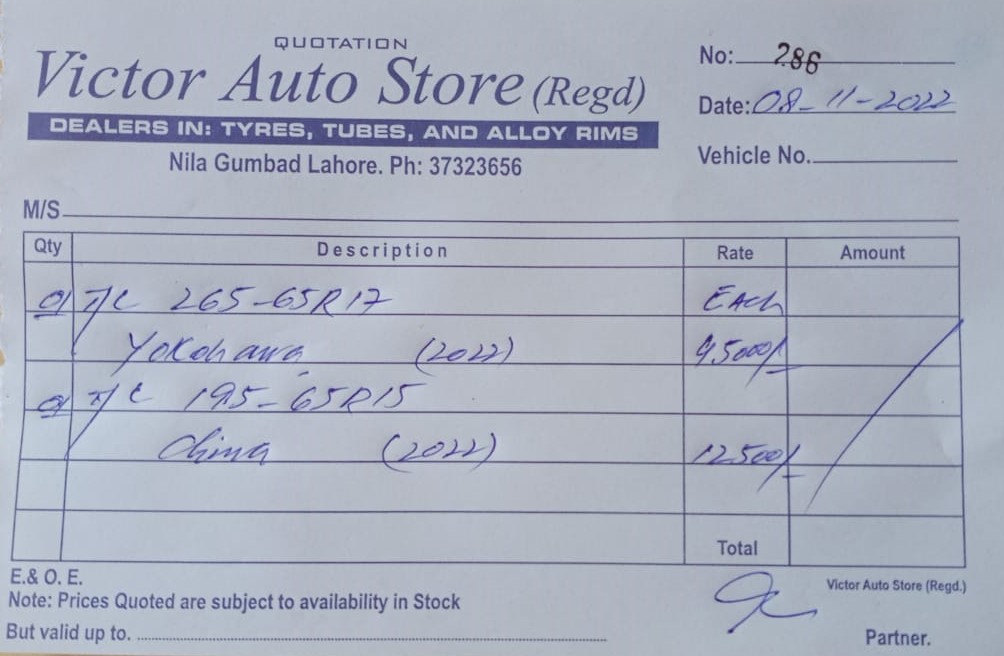 QUOTATION
Victor Auto Store (Regd)
DEALERS IN: TYRES, TUBES, AND ALLOY RIMS
Nila Gumbad Lahore. Ph: 37323656
No: 286
Date: 08-11-2022
Vehicle No.
M/S
Qty Description Rate Amount
01 T/C 265-65R17 EACH
Yokohama (2022) 95000/-
01 T/C 195-65R15
China (2022) 12500/-
Total
E.& O. E.
Victor Auto Store (Regd.)
Note: Prices Quoted are subject to availability in Stock
But valid up to.
Partner.